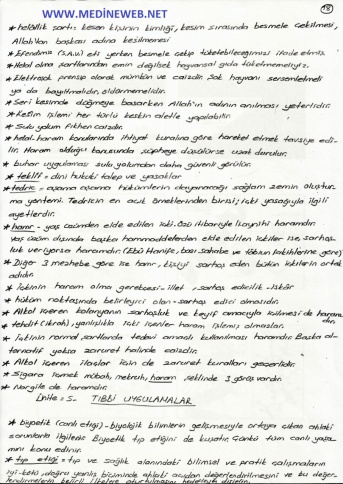 www.MEDİNEWEB.NET
18
* helallik şartı: kesen kişinin kimliği, kesim sırasında besmele çekilmesi,
Allah'tan başkası adına kesilmemesi
* Efendimiz (S.A.V) eti yerken besmele çekip tüketebileceğimizi ifade etmiş
* Helal olma şartlarından emin değilsek hayvansal gıda tüketmemeliyiz.
* Elektroşok prensip olarak mümkün ve caizdir. Şok hayvanı sersemletmeli
ya da bayıltmalıdır, öldürmemelidir.
* Seri kesimde düğmeye basarken Allah'ın adının anılması yeterlidir.
* Kesim işlemi her türlü keskin aletle yapılabilir.
* Sulu yolum fıkhen caizdir.
* helal-haram konularında ihtiyat kuralına göre hareket etmek tavsiye edi-
lir. Haram olduğu konusunda şüpheye düşülürse uzak durulur.
* buhar uygulaması sulu yolumdan daha güvenli görülür.
* teklifi = dini hukuki talep ve yasaklar
* tedric = aşama aşama hükümlerin dayanacağı sağlam zemin oluştur-
ma yöntemi. Tedricin en açık örneklerinden birisi; içki yasağıyla ilgili
ayetlerdir.
* hamr - yaş üzümden elde edilen içki. Özü itibariyle
yaş üzüm dışında başka hammaddelerden elde edilen içkiler ise, sarhoş-
luk veriyorsa haramdır. (Ebû Hanife, bazı sahabe ve tâbiûn fakihlerine göre)
* Diğer 3 mezhebe göre ise hamr, kişiyi sarhoş eden bütün içkilerin ortak
adıdır.
* İçkinin haram olma gerekçesi - illet, sarhoş edicilik - iskâr
* hüküm noktasında belirleyici olan - sarhoş edici olmasıdır.
* Alkol içeren kolonyanın sarhoşluk ve keyif amacıyla içilmesi de haram
dır.
* tehdit (ikrah), yanlışlıkla içki içenler haram işlemiş olmazlar.
* İçkinin normal şartlarda tedavi amaçlı kullanılması haramdır. Başka al-
ternatif yoksa zaruret halinde caizdir.
* Alkol içeren ilaçlar için de zaruret kuralları geçerlidir.
* Sigara içmek mübah, mekruh, haram şeklinde 3 görüş vardır.
* Nargile de haramdır.
Ünite = 5- TIBBİ UYGULAMALAR
* biyoetik (canlı etiği) - biyolojik bilimlerin gelişmesiyle ortaya çıkan ahlaki
sorunlarla ilgilenir. Biyoetik tıp etiğini de kuşatır. Çünkü tüm canlı yaşa-
mını konu edinir.
* tıp etiği = tıp ve sağlık alanındaki bilimsel ve pratik çalışmaların
iyi-kötü, doğru yanlış biçiminde ahlaki açıdan değerlendirilmesini ve bu değer-
lendirmelerin belirli ilkelere oturtulmasını hedefleyen disiplin.